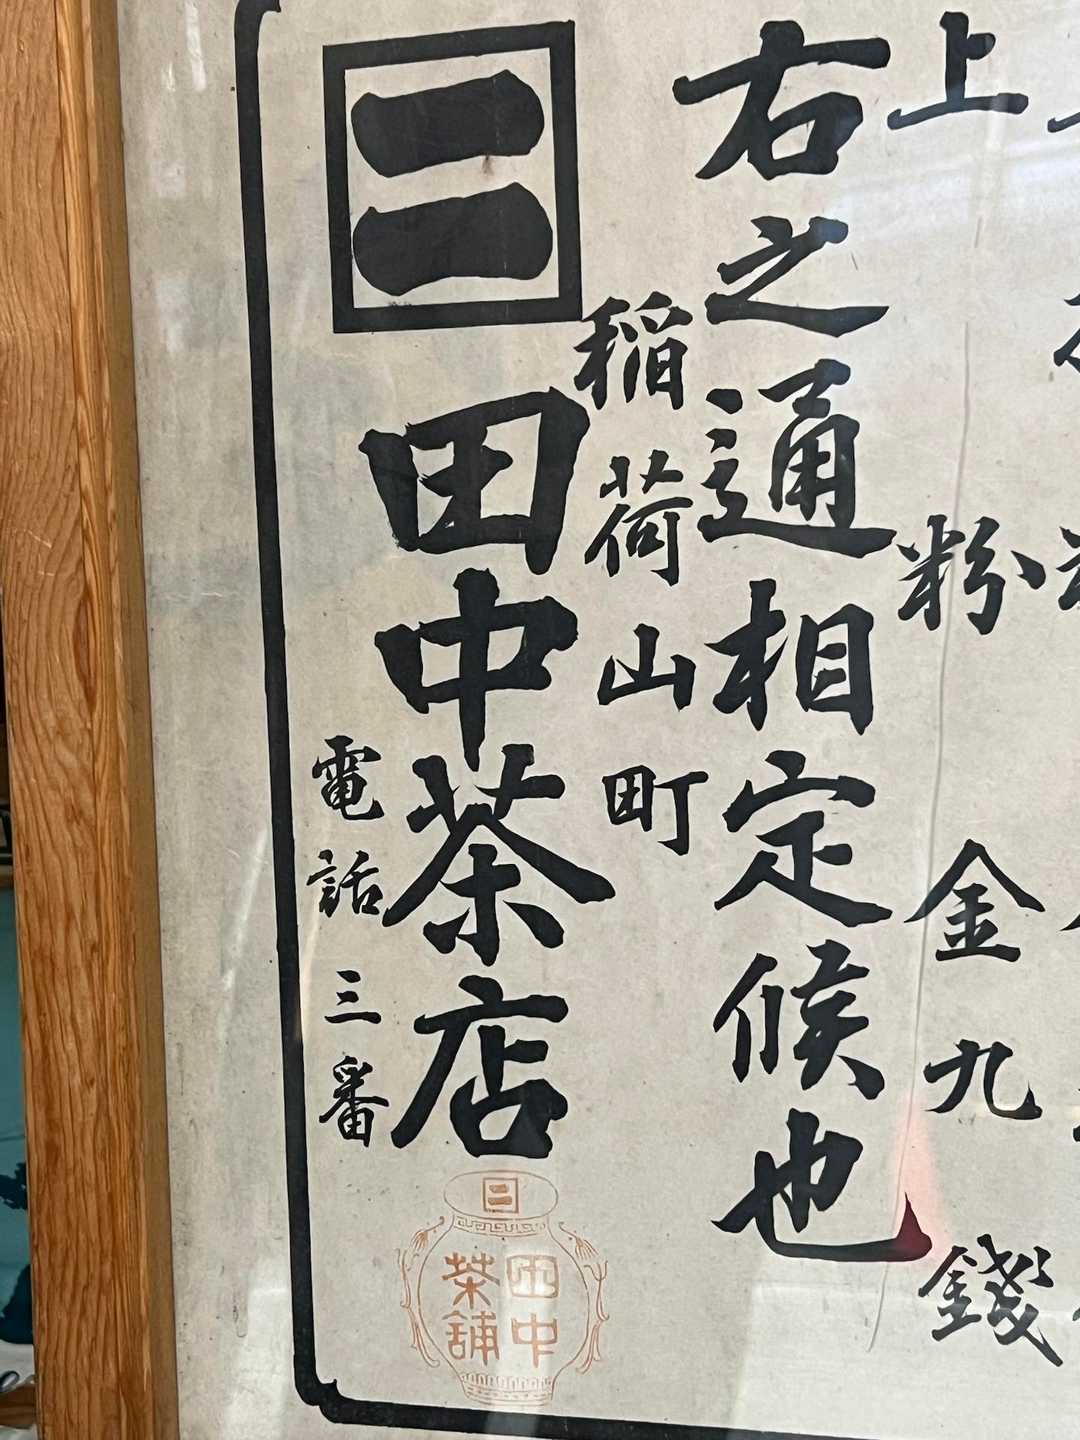 上粉金九錢
右之通相定候也
稲荷山町
二
田中茶店
電話三番
二
田中
茶舖